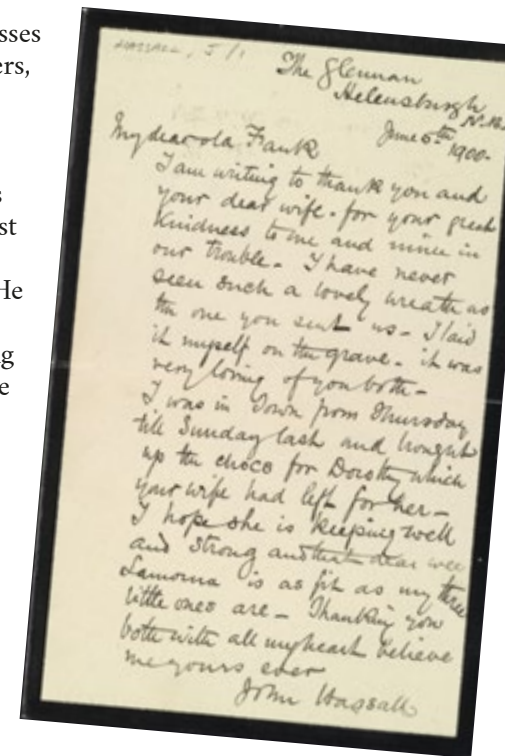 sses
ers,
s
st
He
ng
e
HASSALL, J/1
The Glennan
Helensburgh
N.B.
June 5th 1900-
My dear old Frank
I am writing to thank you and
your dear wife - for your great
kindness to me and mine in
our trouble - I have never
seen such a lovely wreath as
the one you sent us - I laid
it myself on the grave - it was
very loving of you both -
I was in Town from Thursday
till Sunday last and brought
up the chocs for Dorothy which
your wife had left for her -
I hope she is keeping well
and strong and that dear wee
Lamorna is as fit as my three
little ones are - Thanking you
both with all my heart believe
me yours ever
John Hassall